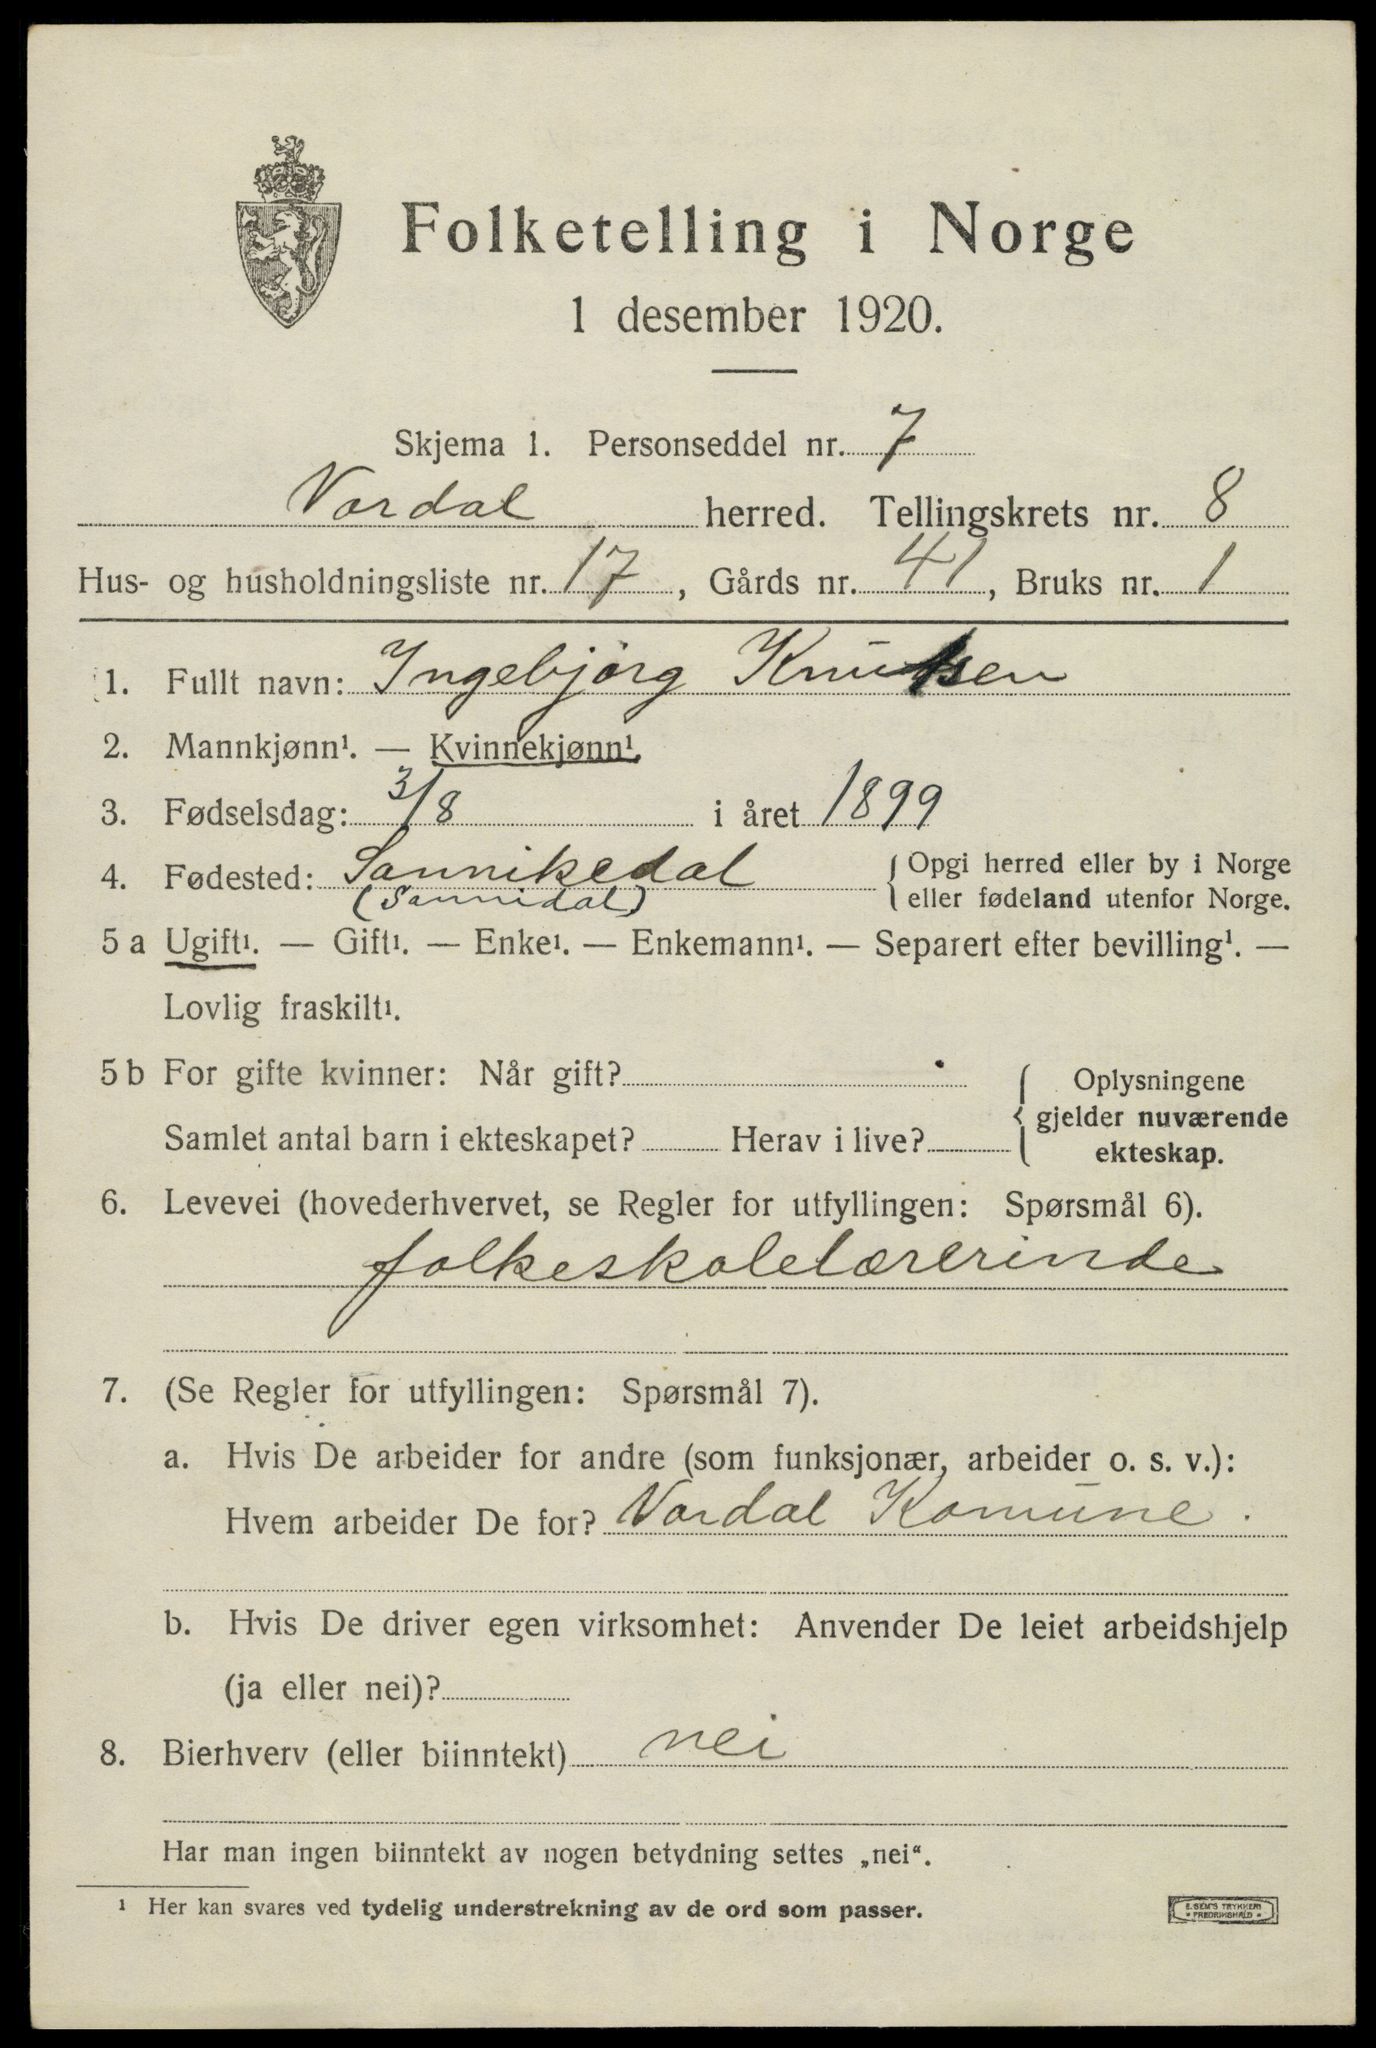 Folketelling i Norge
1 desember 1920.
Skjema 1. Personseddel nr. 7
Vardal herred. Tellingskrets nr. 8
Hus- og husholdningsliste nr. 17, Gårds nr. 41, Bruks nr. 1
1. Fullt navn: Ingebjørg Knutsen
2. Mannkjønn¹. — Kvinnekjønn¹.
3. Fødselsdag: 3/8 i året 1899
4. Fødested: Sannikedal { Opgi herred eller by i Norge
(Sannidal) eller fødeland utenfor Norge.
5 a Ugift¹. — Gift¹. — Enke¹. — Enkemann¹. — Separert efter bevilling¹. —
Lovlig fraskilt¹.
5 b For gifte kvinner: Når gift? { Oplysningene
gjelder nuværende
Samlet antal barn i ekteskapet? Herav i live? ekteskap.
6. Levevei (hovederhvervet, se Regler for utfyllingen: Spørsmål 6).
folkeskolelærerinde
7. (Se Regler for utfyllingen: Spørsmål 7).
a. Hvis De arbeider for andre (som funksjonær, arbeider o. s. v.):
Hvem arbeider De for? Vardal Komune.
b. Hvis De driver egen virksomhet: Anvender De leiet arbeidshjelp
(ja eller nei)?
8. Bierhverv (eller biinntekt) nei
Har man ingen biinntekt av nogen betydning settes „nei“.
¹ Her kan svares ved tydelig understrekning av de ord som passer.
E. SEM'S TRYKKERI
* FREDRIKSHALD *